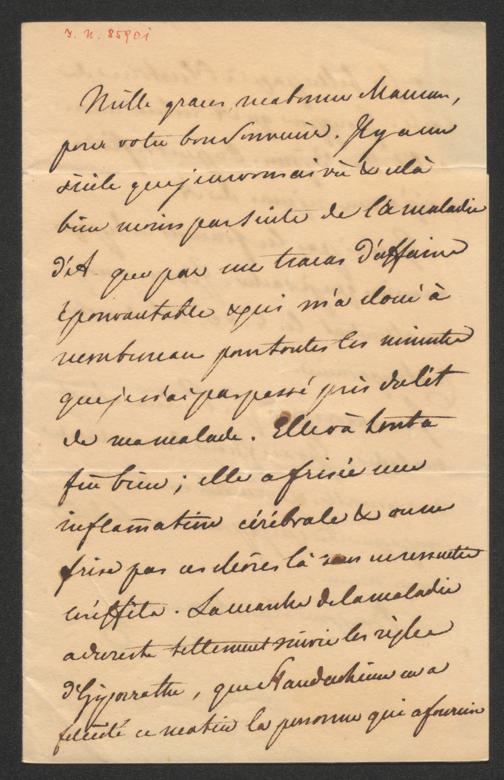 I. N. 85901
Mille graces, ma bonne Maman,
pour votre bon souvenir. Il y a un
siècle que je ne vous ai vû & celà
bien moins par suite de la maladie
d'A que par un tracas d'affaire
épouvantable & qui m'a cloué à
mon bureau pour toutes les minutes
que je n'ai pas passé près du lit
de ma malade. Elle va tout à
fait bien; elle a frisée une
inflam̄ation cérébrale & on ne
frise pas ces choses là sans en ressentir
les effets. La marche de la maladie
a du reste tellement suivie les règles
d'Hyppocrathe, que m'a
félicité ce matin la personne qui a fourni